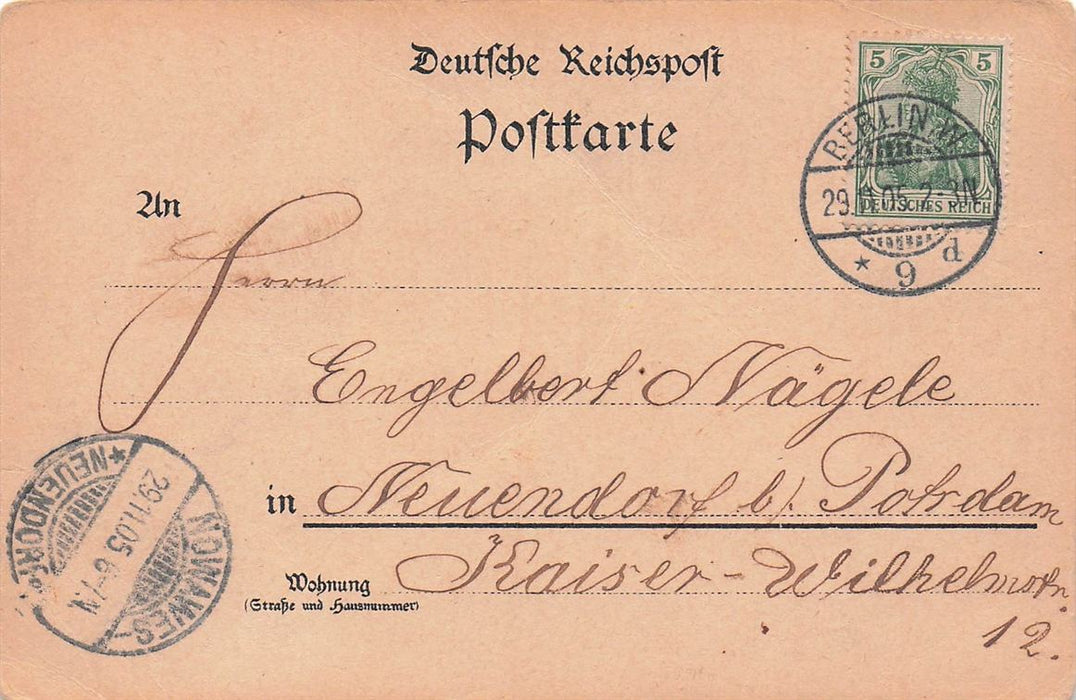 Deutsche Reichspost
Postkarte
5 5
DEUTSCHES REICH
BERLIN W.
29.11.05.2-3N.
* 9 d
An
Herrn
Engelbert Nägele
in Neuendorf b/. Potsdam
Wohnung
(Straße und Hausnummer)
Kaiser-Wilhelmstr.
12.
NOWAWES-
29.11.05.6-7N.
*NEUENDORF*